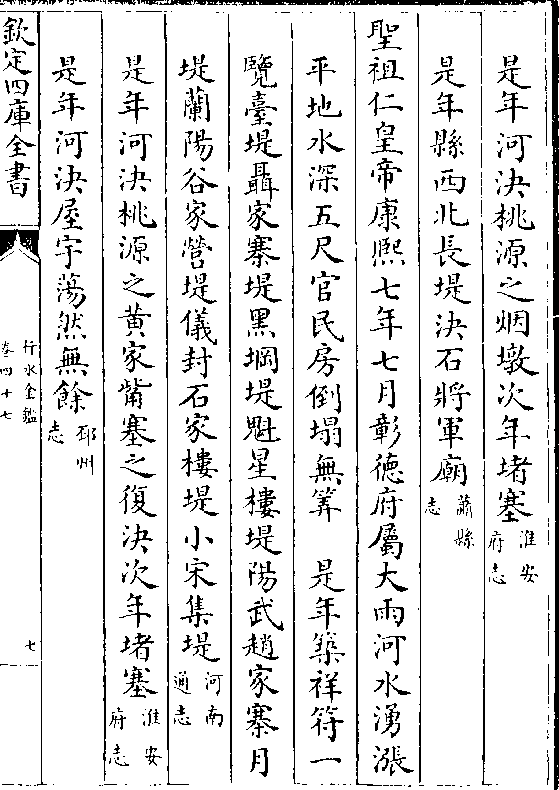 是年河決桃源之烟墩次年堵塞淮安府志
是年縣西北長堤決石將軍廟蕭縣志
聖祖仁皇帝康熙七年七月彰德府屬大雨河水湧漲
平地水深五尺官民房倒塌無筭　是年築祥符一
覽臺堤聶家寨堤黑堈堤魁星樓堤陽武趙家寨月
堤蘭陽谷家營堤儀封石家樓堤小宋集堤河南通志
是年河決桃源之黃家觜塞之復決次年堵塞淮安府志
是年河決屋宇蕩然無餘邳州志
欽定四庫全書
行水金鑑
卷四十七
七